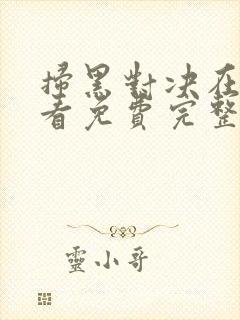 掃黑對决在
看免費完整
靈小哥